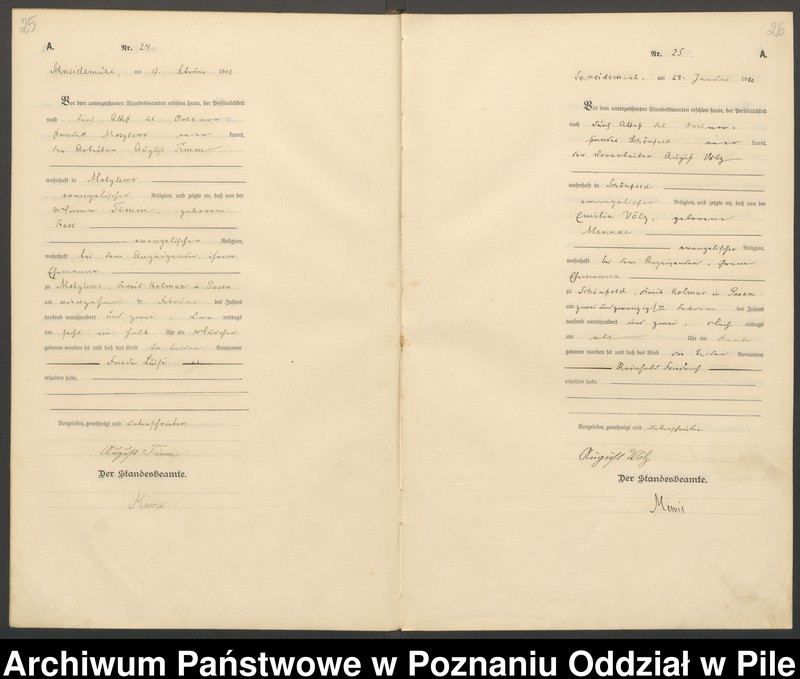 25
A.
Nr. 24
Schneidemühl, am 17. Februar 1902
Vor dem unterzeichneten Standesbeamten erschien heute, der Persönlichkeit
nach durch Attest des
Motylewo kannt,
der Arbeiter August Timm
wohnhaft in Motylewo
evangelischer Religion, und zeigte an, daß von der
Timm, geborene
evangelischer Religion,
wohnhaft bei dem Anzeigenden, ihrem
Ehemanne
zu Motylewo, Kreis Kolmar in Posen
am vierzehn ten Februar des Jahres
tausend neunhundert und zwei, Vor mittags
um Uhr ein Mädchen
geboren worden sei und daß das Kind die beiden Vornamen
Frieda Luise
erhalten habe.
Vorgelesen, genehmigt und unterschrieben
August Timm
Der Standesbeamte.
Mewis
26
Nr. 25
A.
Schneidemühl, am Januar 1902
Vor dem unterzeichneten Standesbeamten erschien heute, der Persönlichkeit
nach durch Attest des
Schönfeld kannt,
der Vorarbeiter August Völz
wohnhaft in Schönfeld
evangelischer Religion, und zeigte an, daß von der
Emilie Völz, geborene
Manske
evangelischer Religion,
wohnhaft bei dem Anzeigenden, ihrem
Ehemanne
zu Schönfeld, Kreis Kolmar in Posen
am zwei und zwanzigsten des Jahres
tausend neunhundert und zwei, Nach mittags
um elf Uhr ein Knabe
geboren worden sei und daß das Kind die beiden Vornamen
Reinhold Friedrich
erhalten habe.
Vorgelesen, genehmigt und unterschrieben
August Völz
Der Standesbeamte.
Mewis
Archiwum Państwowe w Poznaniu Oddział w Pile